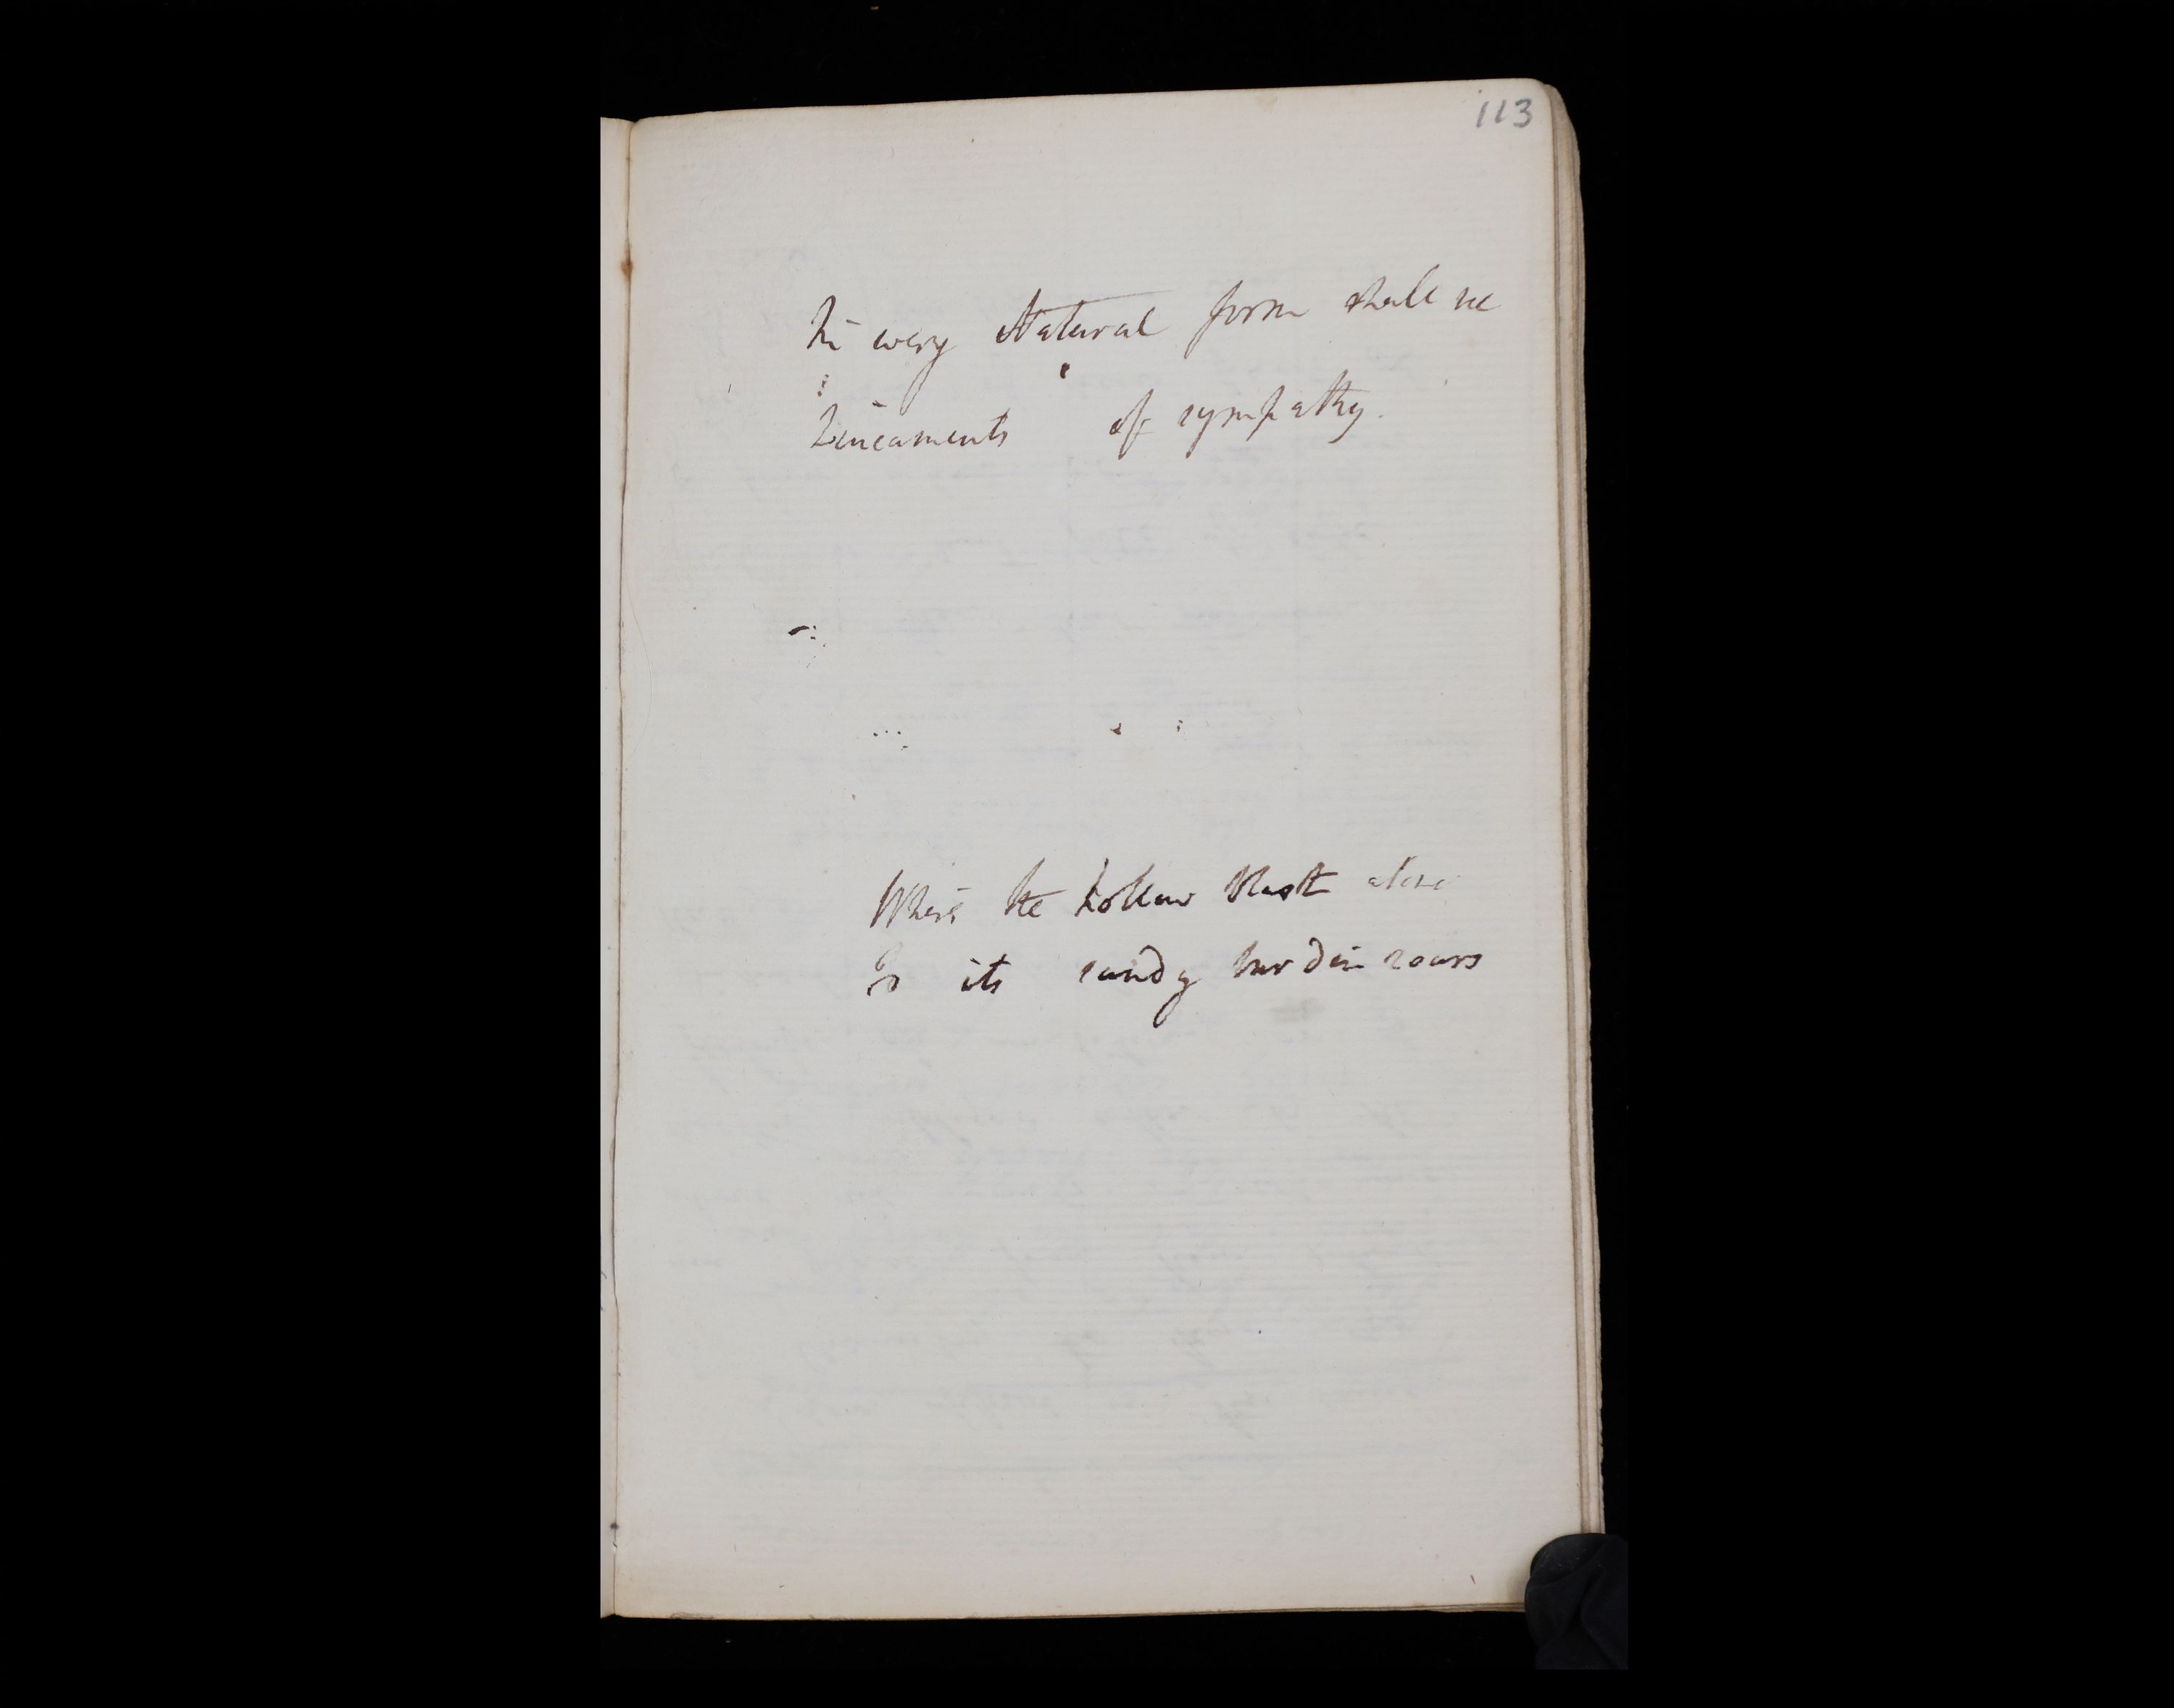 113
In every Natural form shall we
Lineaments of sympathy.
Where the hollow blast alone
To its sandy burden roars